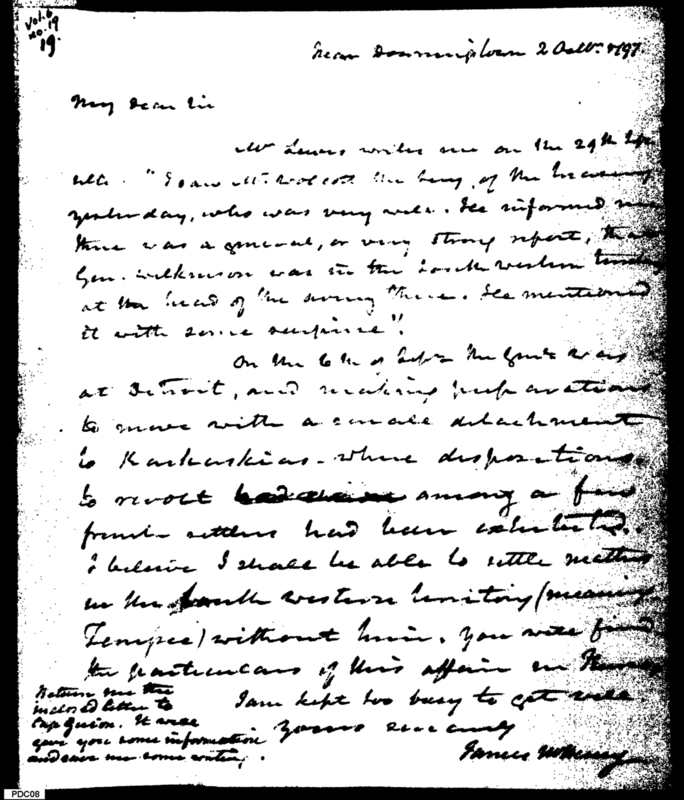 Vol. 6
no. 19
19.
near Downingtown 2 Octbr. 1797.
My dear Sir
Mr Lewis writes me on the 29th Sept
ulto. "I saw Mr. Wolcott the Secy. of the Treasury
yesterday, who was very well. He informed me
there was a general, or very strong report, that
Gen. Wilkinson was in the South western
at the head of the army there. He mentioned
it with some surprise".
On the 6th of Sepr. the Genl. was
at Detroit, and making preparations
to move with a small detachment
to Kaskaskias - where dispositions
to revolt among a few
french settlers had been exhibited.
I believe I shall be able to settle matters
in the South western territory (meaning
) without him. You will find
the particulars of this affair in
I am kept too busy to get well
Yours sincerely
James McHenry
Return me the
inclosed letter to
Cap Guion. It will
give you some information
and save me some writing.
PDC08